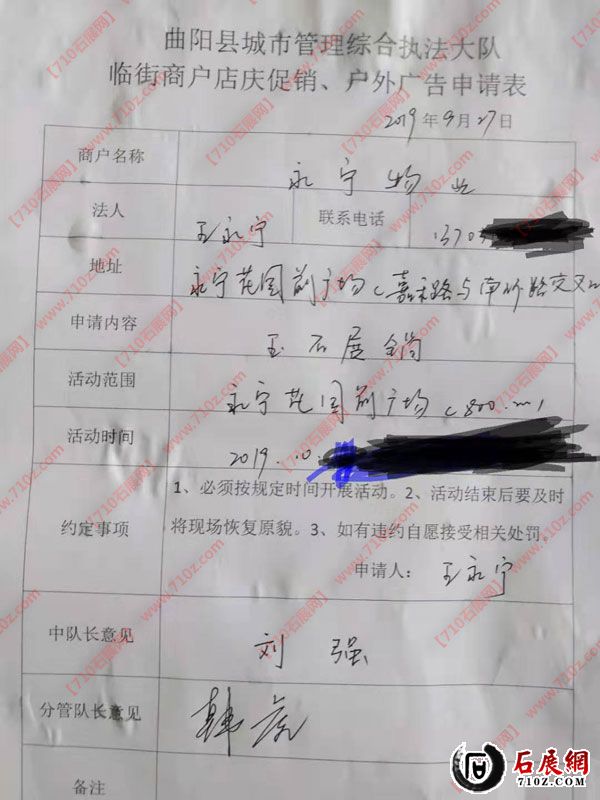 曲阳县城市管理综合执法大队
临街商户店庆促销、户外广告申请表
2019年9月27日
商户名称 永宁物业
法人 王永宁 联系电话 1370
地址 永宁花园前广场(嘉禾路与南环路交叉口
申请内容 玉石展销
活动范围 永宁花园前广场
活动时间 2019.10.
约定事项 1、必须按规定时间开展活动。2、活动结束后要及时
将现场恢复原貌。3、如有违约自愿接受相关处罚。
申请人: 王永宁
中队长意见 刘强
分管队长意见
备注
【710石展网】
www.710z.com
石展網
710Z.COM